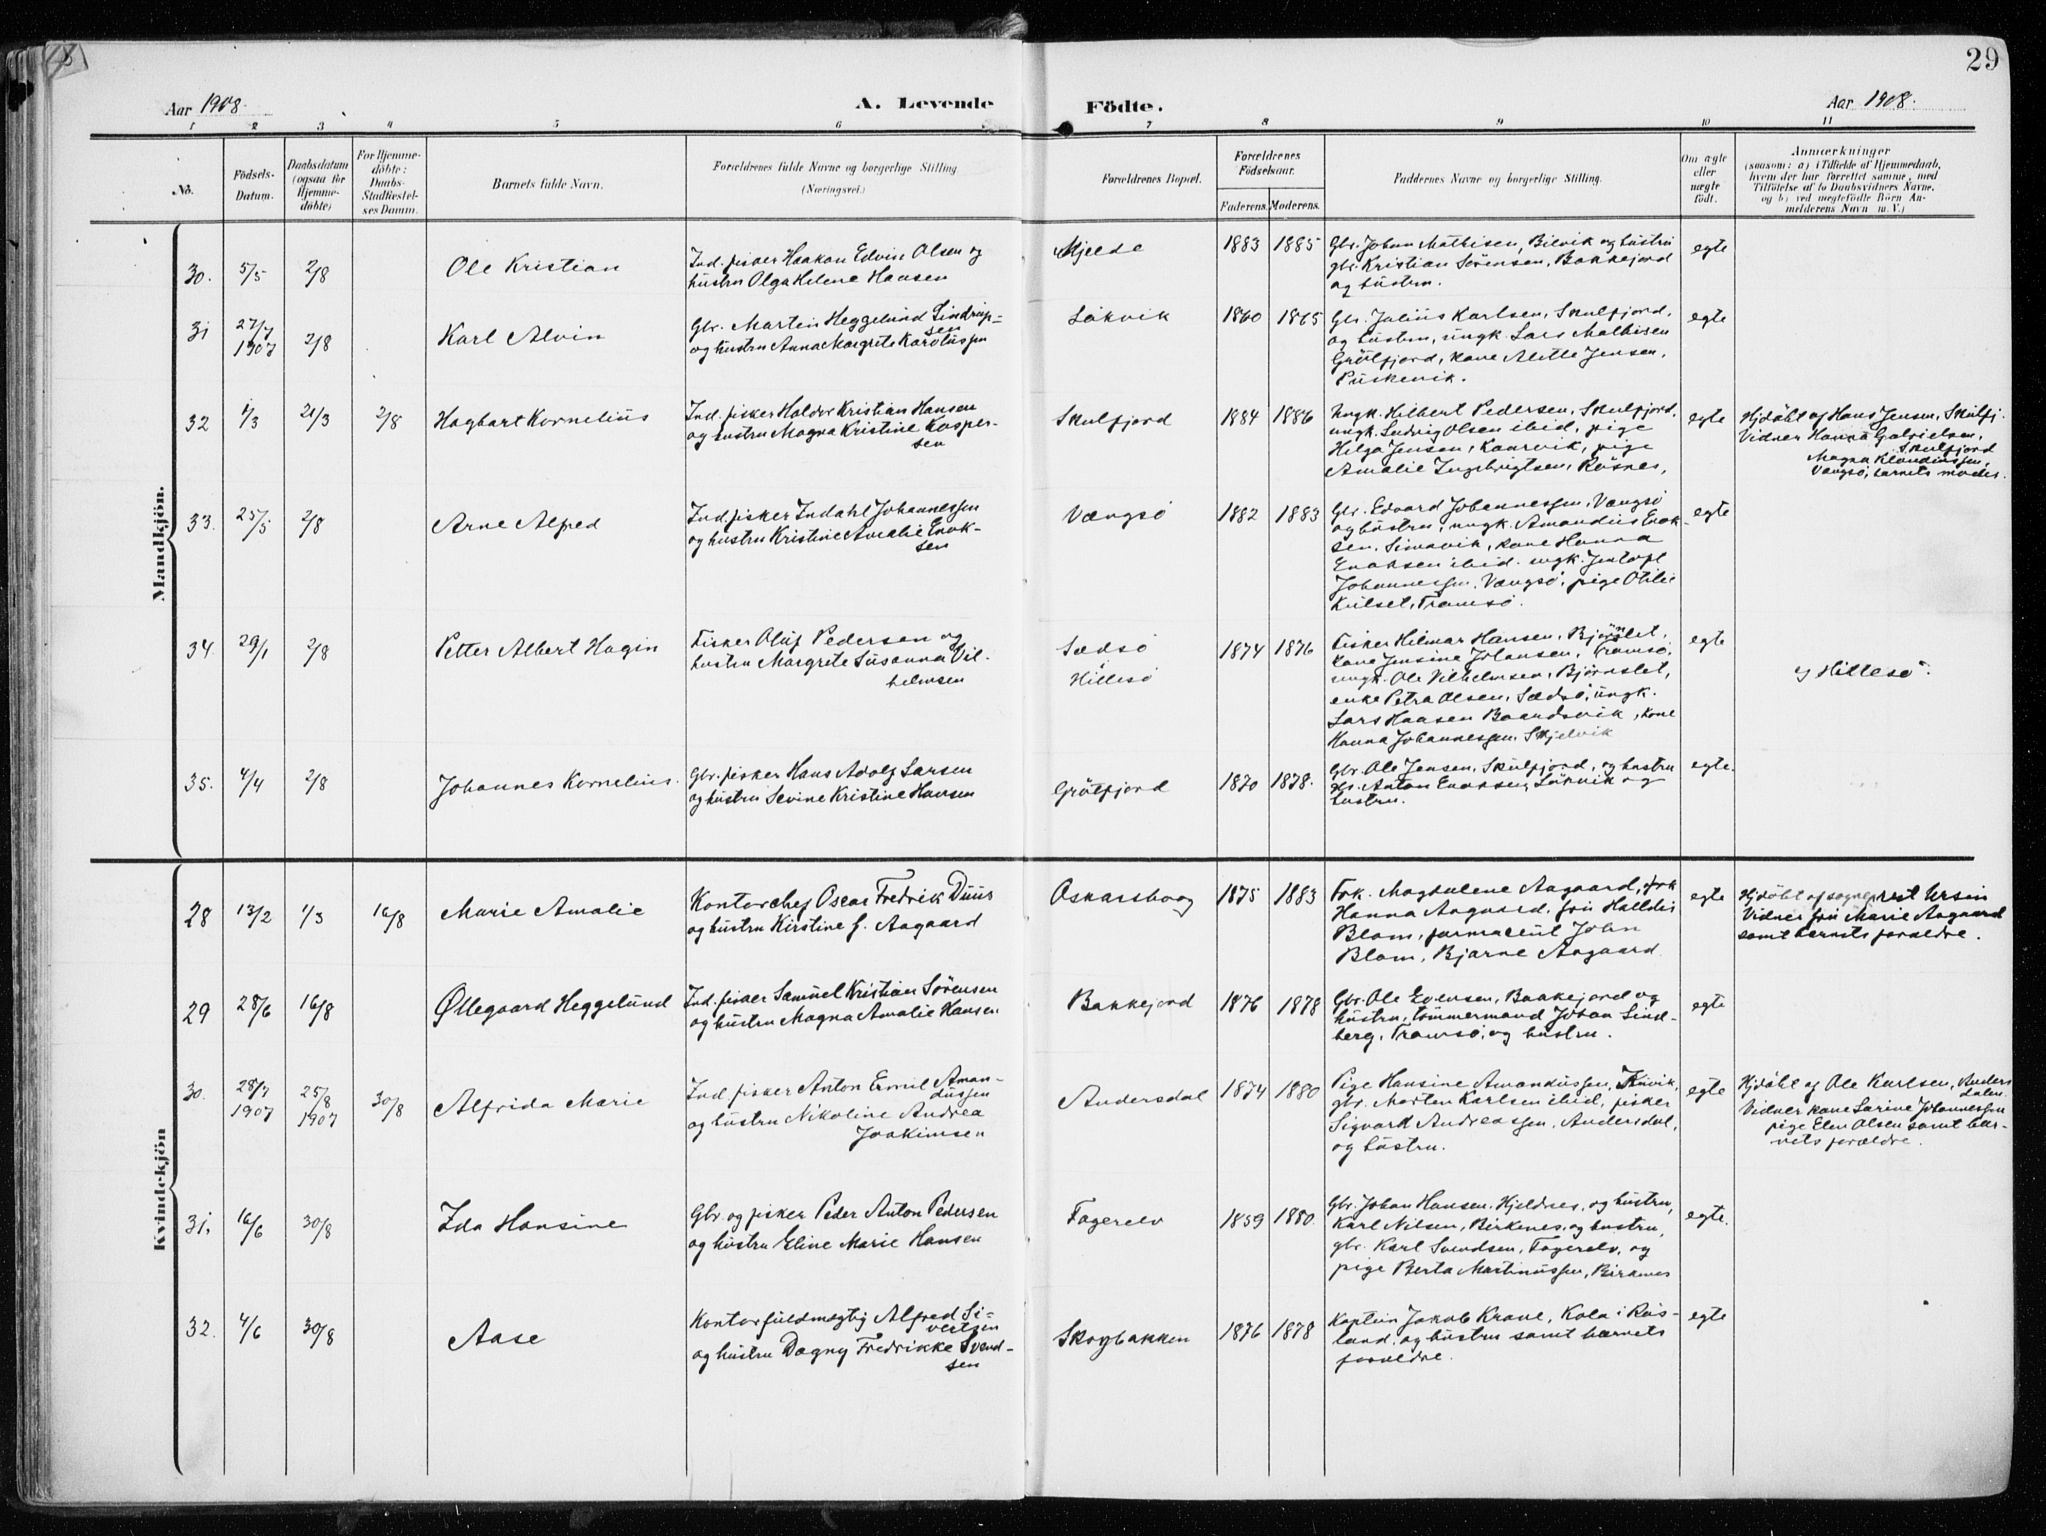 29
Aar 1908.
A. Levende
Födte.
Aar 1908.
1 2 3 4 5 6 7 8 9 10 11
No.
Födsels-
Datum.
Daabsdatum
(ogsaa for
Hjemme-
döbte)
For Hjemme-
döbte:
Daabs-
Stadfæstel-
ses Datum.
Barnets fulde Navn.
Forældrenes fulde Navne og borgerlige Stilling
(Næringsvei.)
Forældrenes Bopæl.
Forældrenes
Födselsaar.
Faderens. Moderens.
Faddernes Navne og borgerlige Stilling.
Om ægte
eller
uægte
födt.
Anmærkninger
(saasom: a) i Tilfælde af Hjemmedaab,
hvem der har forrettet samme, med
Tilföielse af to Daabsvidners Navne,
og b) ved uægtefödte Börn An-
melderens Navn m. V.)
Mandkjön.
30. 5/5 2/8
Ole Kristian
Ind. fisker Haakon Edvin Olsen og
hustru Olga Helene Hansen
Mjelde
1883 1885
Gbr. Johan Mathisen, Bilvik og hustru
gbr. Kristian Sørensen, Bakkejord
og hustru.
egte
31 27/7
1907 2/8
Karl Alvin
Gbr. Martin Heggelund Lindrup-
sen
og hustru Anna Margrete Karolussen
Løkvik
1860 1865
Gbr. Julius Karlsen, Skulfjord,
og hustru, ungk. Lars Mathisen
Grøtfjord, kone Alette Jensen,
Puskevik.
egte
32 1/3 21/3 2/8
Hagbart Kornelius
Ind. fisker Haldor Kristian Hansen
og hustru Magna Kristine Kasper-
sen
Skulfjord
1884 1886
Ungk. Hilbert Pedersen, Skulfjord,
ungk. Ludvig Olsen ibid, pige
Helga Jensen, Kaarvik, pige
Amalie Ingebrigtsen, Røsnes,
egte
Hjdøbt af Hans Jensen, Skulfj.
Vidner Hanna Gabrielsen,
Skulfjord
Magna Klaudiussen,
Vængsø, barnets moder.
33. 25/5 2/8
Arne Alfred
Ind. fisker Indahl Johannessen
og hustru Kristine Amalie Enok-
sen
Vængsø
1882 1883
Gbr. Edvard Johannessen, Vængsø
og hustru, ungk. Amandus Enok-
sen, Simavik, kone Hanna
Enoksen ibid. ungk. Jentoft
Johannessen, Vængsø, pige Otilie
Kvilset, Tromsø.
egte
34. 29/1 2/8
Petter Albert Hagin
Fisker Oluf Pedersen og
hustru Margrete Susanna Vil-
helmsen
Sædsø
Hillesø
1874 1876
Fisker Hilmar Hansen, Bjørnslet,
kone Jensine Johansen, Tromsø,
ungk. Ole Vilhelmsen, Bjørnslet,
enke Petra Olsen, Sædsø, ungk.
Lars Hansen Baandsvik, kone
Hanna Johannessen, Skjelvik
egte
af Hillesø.
35. 4/4 2/8
Johannes Kornelius.
Gbr. fisker Hans Adolf Larsen
og hustru Sevine Kristine Hansen
Grøtfjord
1870 1878.
Gbr. Ole Jensen, Skulfjord, og hustru
gbr. Anton Enoksen, Løkvik og
hustru.
egte.
Kvindekjön
28 13/2 1/3 16/8
Marie Amalie
Kontorchef Oscar Fredrik Duus
og hustru Kirstine G. Aagaard
Oskarsborg
1875 1883
Frk. Magdalene Aagaard, frk
Hanna Aagaard, fru Halldis
Blom, farmaceut John
Blom, Bjarne Aagaard.
egte
Hjdøbt af sogneprest Ursin
Vidner fru Marie Aagaard
samt barnets forældre.
29 28/6 16/8
Øllegaard Heggelund
Ind. fisker Samuel Kristian Sørensen
og hustru Magna Amalie Hansen
Bakkejord
1876 1878
Gbr. Ole Evensen, Bakkejord og
hustru, tømmermand Johan Lind-
berg, Tromsø, og hustru.
egte
30. 28/7
1907 25/8
1907 30/8
Alfrida Marie
Ind. fisker Anton Ermil Aman-
dussen
og hustru Nikoline Andrea
Joakimsen
Andersdal
1874 1880
Pige Hansine Amandussen,
gbr. Morten Karlsen ibid, fisker
Sigvard Andreassen, Andersdal,
og hustru.
egte
Hjdøbt af Ole Karlsen, Anders
dalen.
Vidner kone Sarine Johannessen
pige Elen Olsen samt bar-
nets forældre.
31. 16/6 30/8
Ida Hansine
Gbr. og fisker Peder Anton Pedersen
og hustru Eline Marie Hansen
Fagerelv
1859 1880.
Gbr. Johan Hansen, Hjeldnes, og hustru,
Karl Nilsen, Birkenes, og hustru,
gbr. Karl Svendsen, Fagerelv, og
pige Berta Martinussen, Birkenes
egte.
32. 4/6 30/8
Aase
Kontorfuldmægtig Alfred Si-
vertsen
og hustru Dagny Fredrikke Svend-
sen
Skogbakken
1876 1878
Kaptein Jakob Krane, Kola i Rus-
land, og hustru samt barnets
forældre.
egte